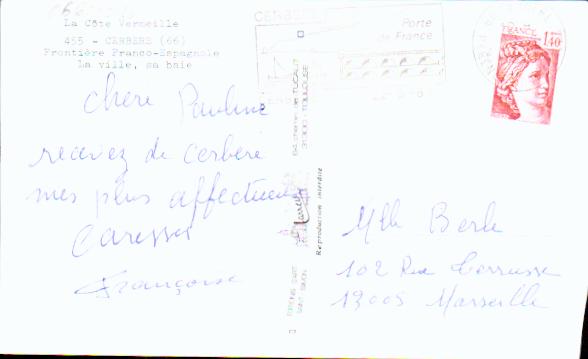 La Côte Vermeille
455 - CERBERE (66)
Frontière Franco-Espagnole
La ville, sa baie
CERBERE
Porte
de France
FRANCE
1,40
chère Pauline
recevez de Cerbère
mes plus affectueuses
Caresses
Françoise
31300 - TOULOUSE
Reproduction interdite
Mlle Berle
102 Rue
13005 Marseille